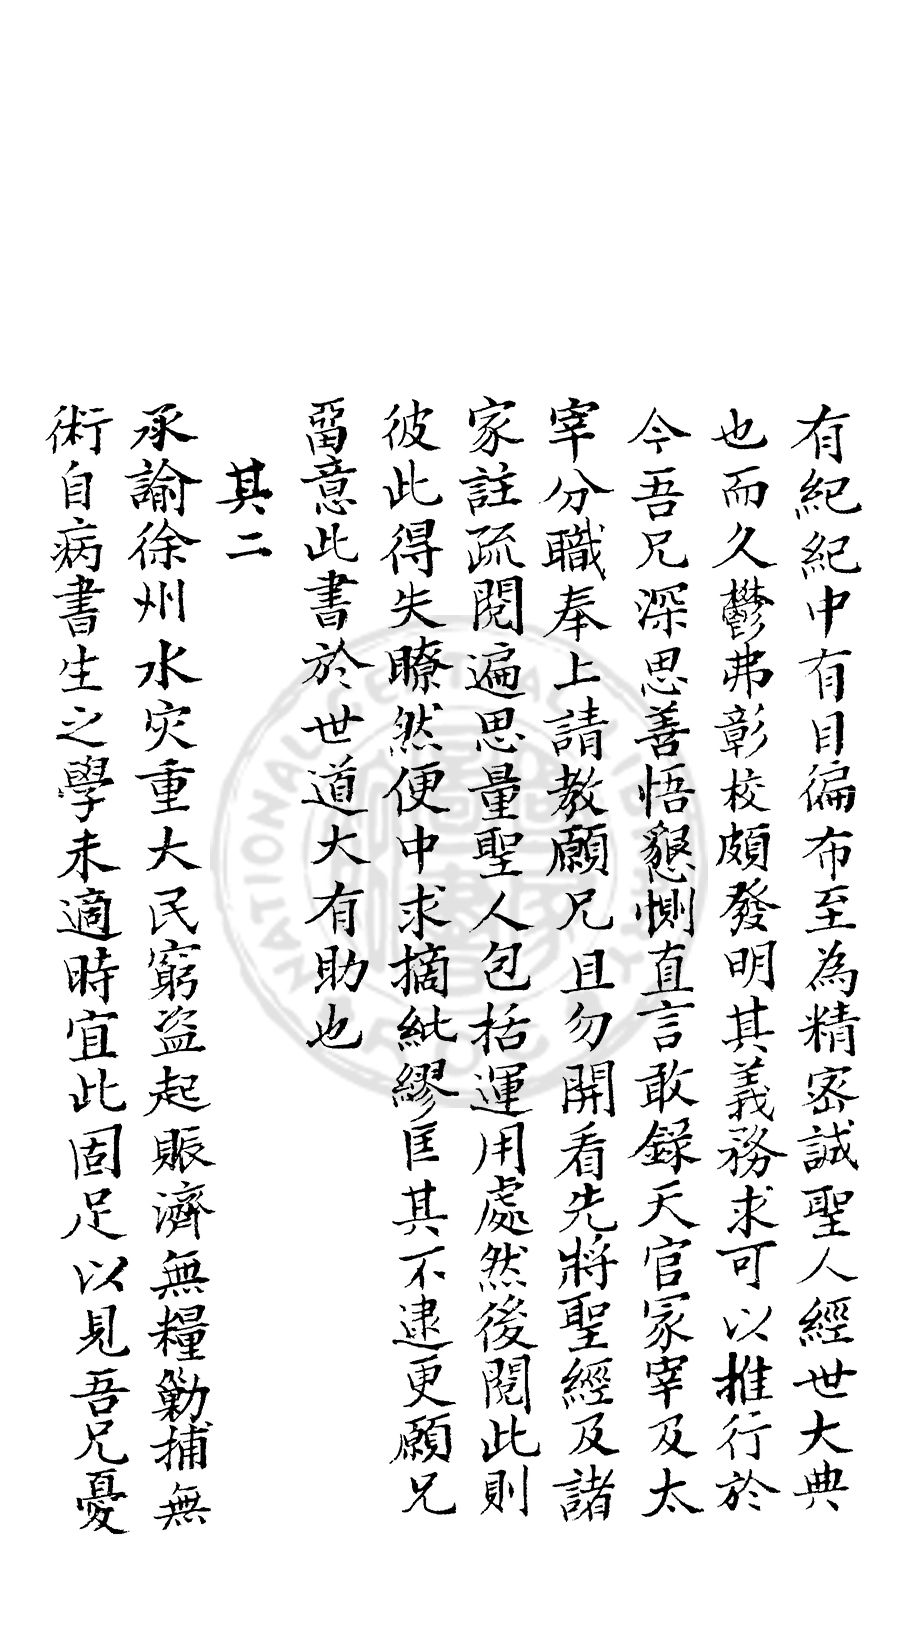 有紀紀中有目徧布至為精密誠聖人經世大典
也而久鬱弗彰校頗發明其義務求可以推行於
今吾兄深思善悟懇惻直言敢錄天官冢宰及太
宰分職奉上請教願兄且勿開看先將聖經及諸
家註疏閱遍思量聖人包括運用處然後閱此則
彼此得失瞭然便中求摘紕繆匡其不逮更願兄
畱意此書於世道大有助也
其二
承諭徐州水灾重大民窮盗起賑濟無糧勦捕無
術自病書生之學未適時宜此固足以見吾兄憂